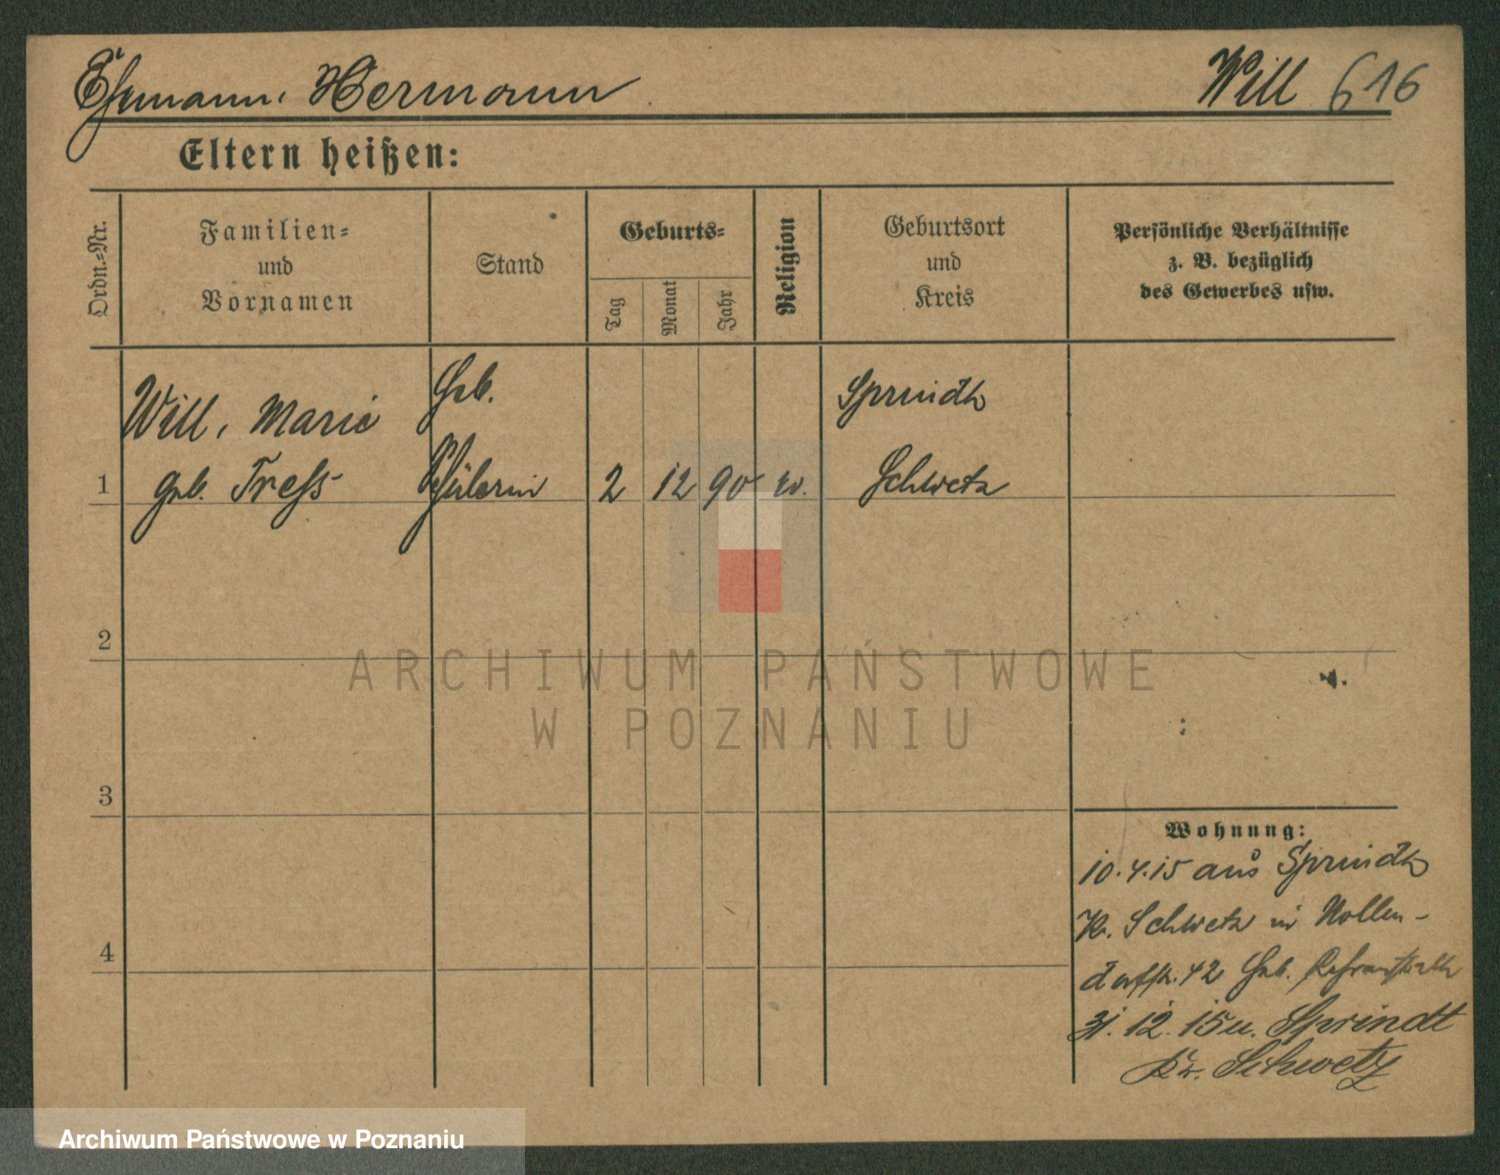 Ehemann: Hermann Will 616
Eltern heißen:
Ordn.-Nr.
Familien-
und
Vornamen
Stand
Geburts-
Tag
Monat
Jahr
Religion
Geburtsort
und
Kreis
Persönliche Verhältnisse
z. B. bezüglich
des Gewerbes usw.
Will, Marie
geb. Tress
Heb.
Schülerin
1
2 12 90 ev.
Sprindt
Schwetz
2
3
4
Wohnung:
10.4.15 aus Sprindt
Kr. Schwetz in Nollen-
dorffstr. 42 Heb.
31.12.15 u. Sprindt
Kr. Schwetz
ARCHIWUM PAŃSTWOWE
W POZNANIU
Archiwum Państwowe w Poznaniu